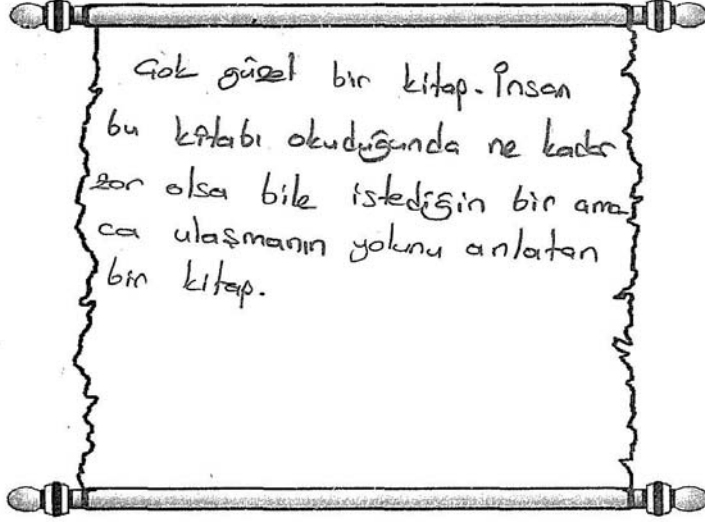 Çok güzel bir kitap. İnsan
bu kitabı okuduğunda ne kadar
zor olsa bile istediğin bir ama
ca ulaşmanın yolunu anlatan
bir kitap.